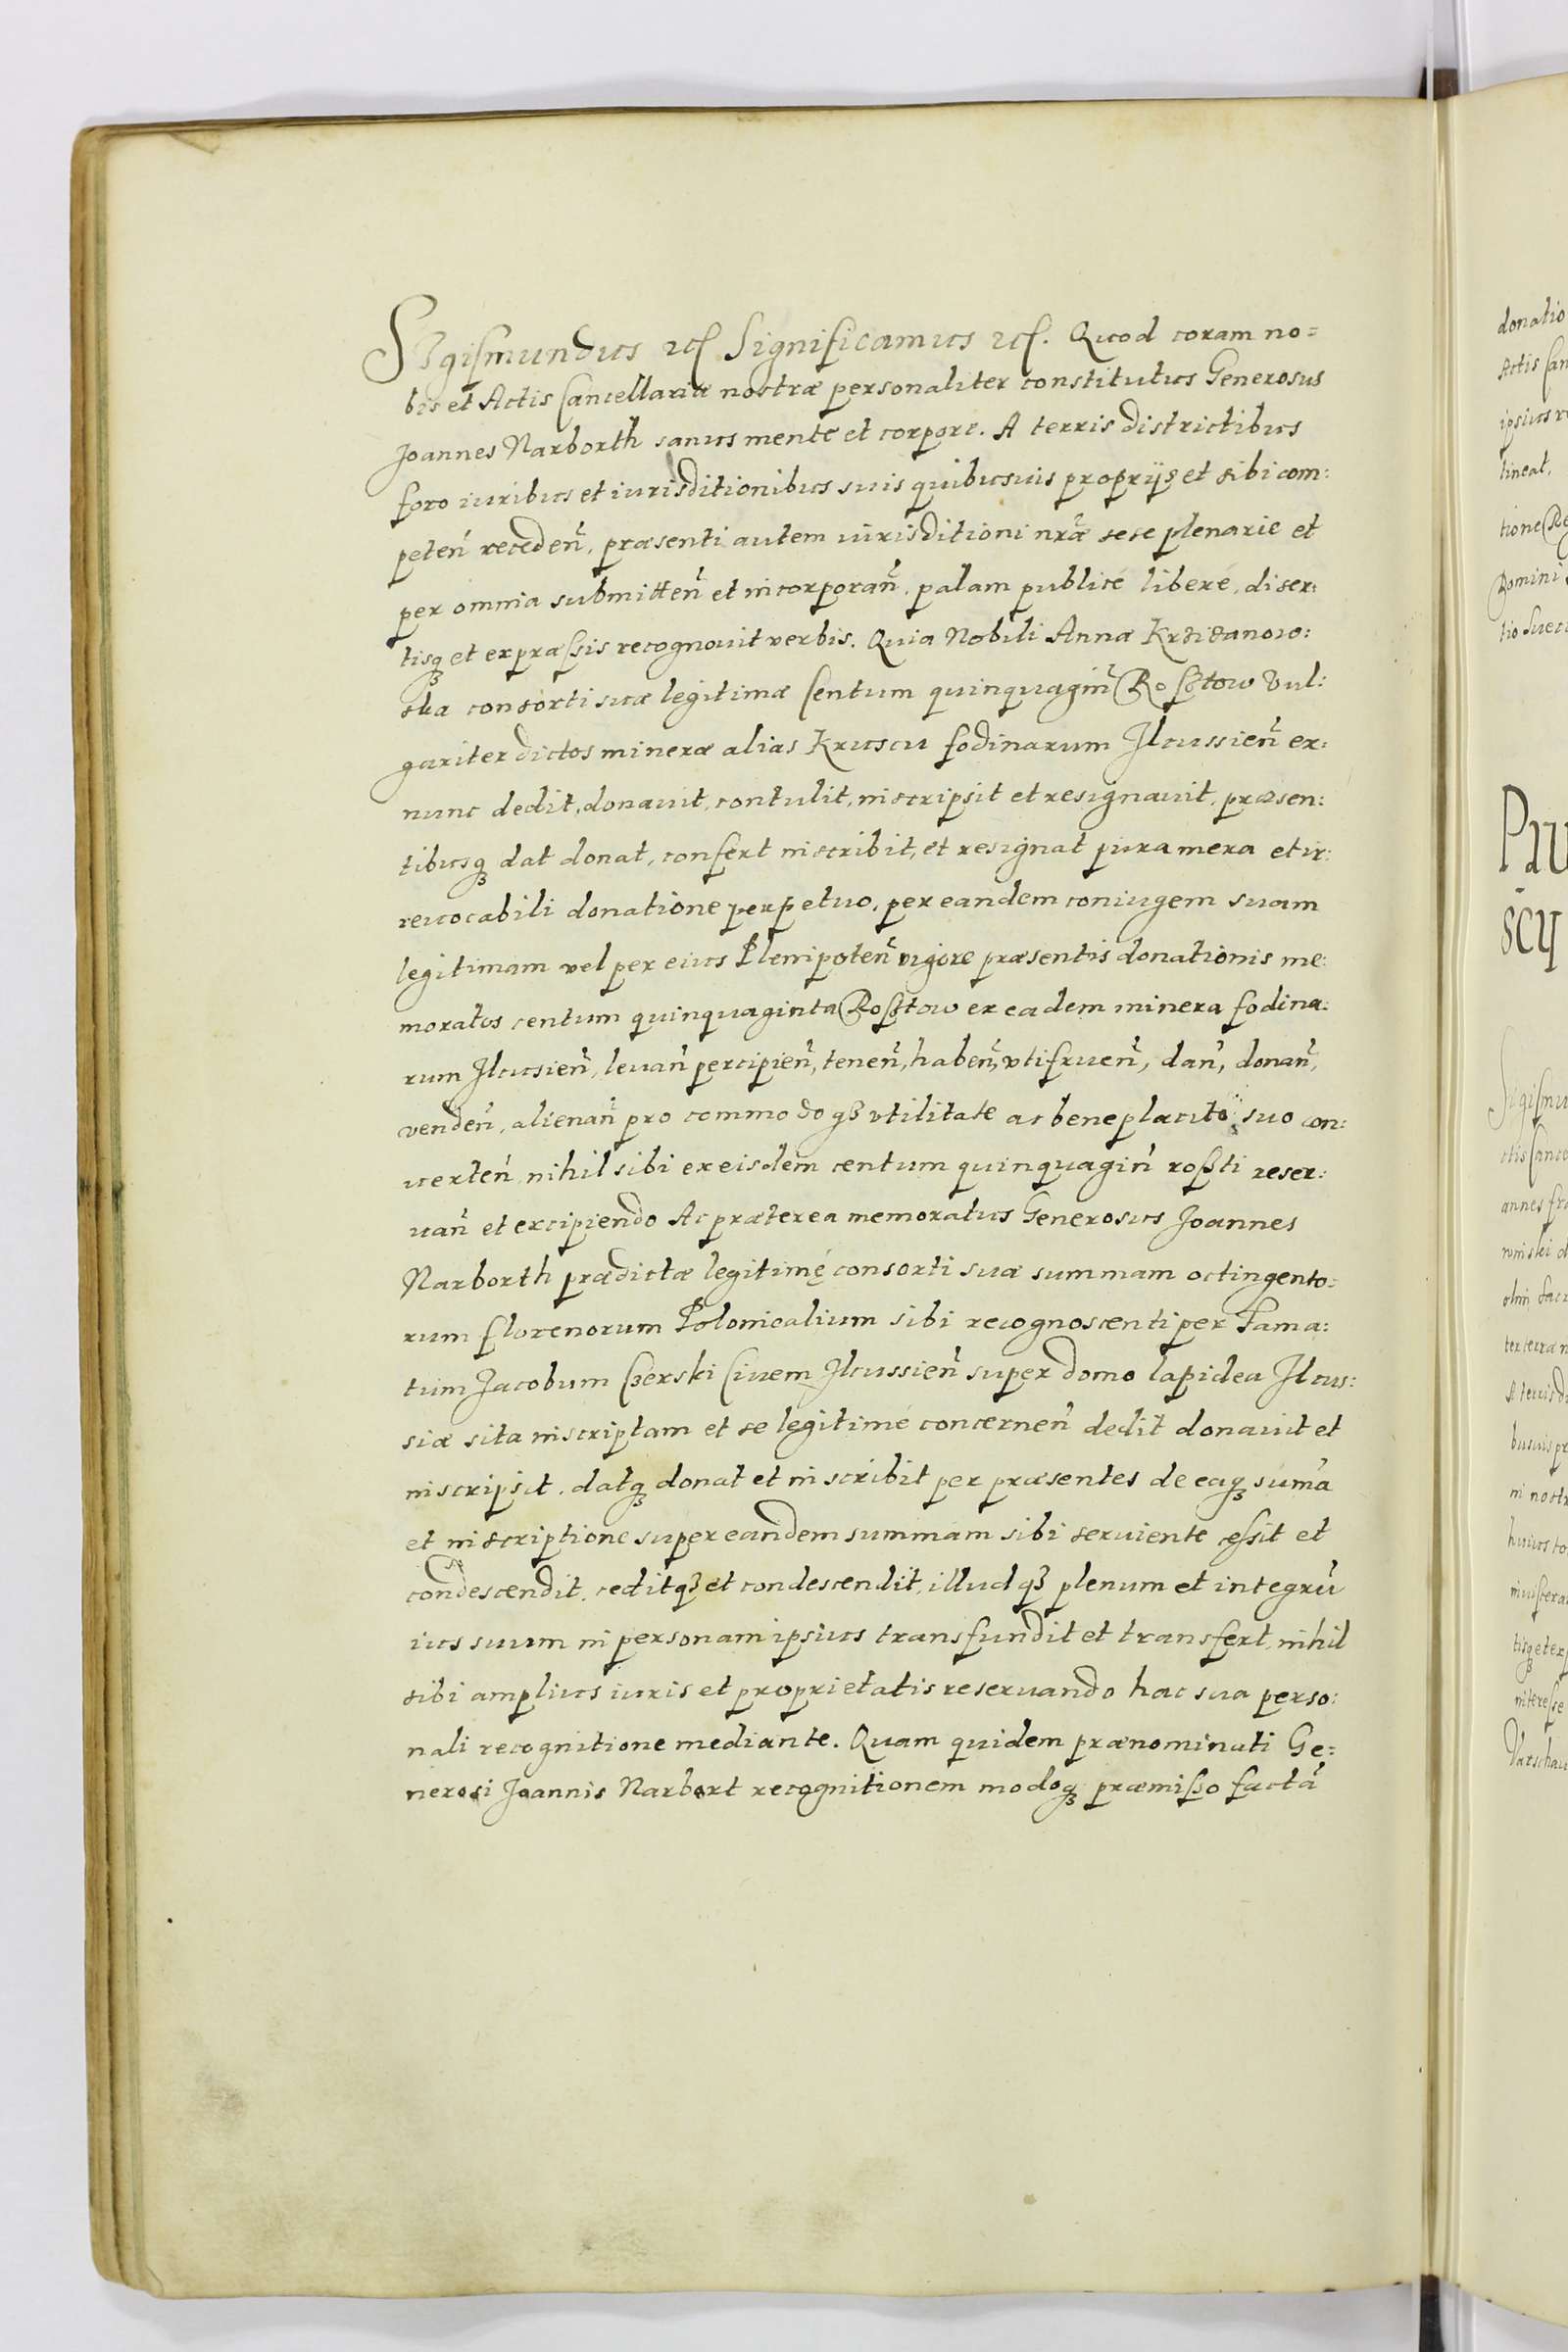 Sigismundus etc Significamus etc. Quod coram no=
bis et Actis Cancellariæ nostræ personaliter constitutus Generosus
Joannes Narborth sanus mente et corpore. A terris districtibus
foro iuribus et iurisditionibus suis quibusuis proprijs et sibi com:
peteñ recedeñ, præsenti autem iurisditioni nr̃æ sese plenarie et
per omnia submitteñ et incorporañ, palam publicé liberé, diser:
tisq et expræssis recognouit verbis. Quia Nobili Annæ Krzizanow:
ska consorti suæ legitimæ Centum quinquagiñ Rosztow Vul:
gariter dictos mineræ alias Kruscu fodinarum Jlcussieñ ex:
nunc dedit, donauit, contulit, inscripsit et resignauit, præsen:
tibusq dat donat, confert inscribit, et resignat pura mera et ir:
reuocabili donatione perpetuo, per eandem coniugem suam
legitimam vel per eius Plenipoteñ vigore præsentis donationis me:
moratos centum quinquaginta Rosztow ex eadem minera fodina:
rum Jlcusieñ, leuañ percipieñ, teneñ, habeñ, vtifrueñ, dañ, donañ,
vendeñ, alienañ pro commodo qz vtilitate ac beneplacito suo con:
uerteñ nihil sibi ex eisdem centum quinquagiñ roszti reser:
uañ et excipiendo Ac præterea memoratus Generosus Joannes
Narborth prædictæ legitimę consorti suæ summam octingento=
rum florenorum Polonicalium sibi recognoscenti per Fama:
tum Jacobum Czerski Ciuem Jlcussieñ super domo lapidea Jlcus:
siæ sita inscriptam et se legitimé concerneñ dedit donauit et
inscripsit, datq donat et inscribit per præsentes de eaq suma
et inscriptione super eandem summam sibi seruiente cessit et
condescendit, ceditqz et condescendit, illudqz plenum et integrũ
ius suum in personam ipsius transfundit et transfert, nihil
sibi amplius iuris et proprietatis reseruando hac sua perso:
nali recognitione mediante. Quam quidem prænominati Ge=
nerosi Joannis Narbort recognitionem modoq præmisso factã
donatio
Actis Can
ipsius re
tineat.
tione Re
Domini
tio Suec
PIU
scy
Sigismu
ctis Cance
annes fra
ter terra n
A terris di
busuis pr
ni nostr
huius co
tisq et exp
interesse
Varschau